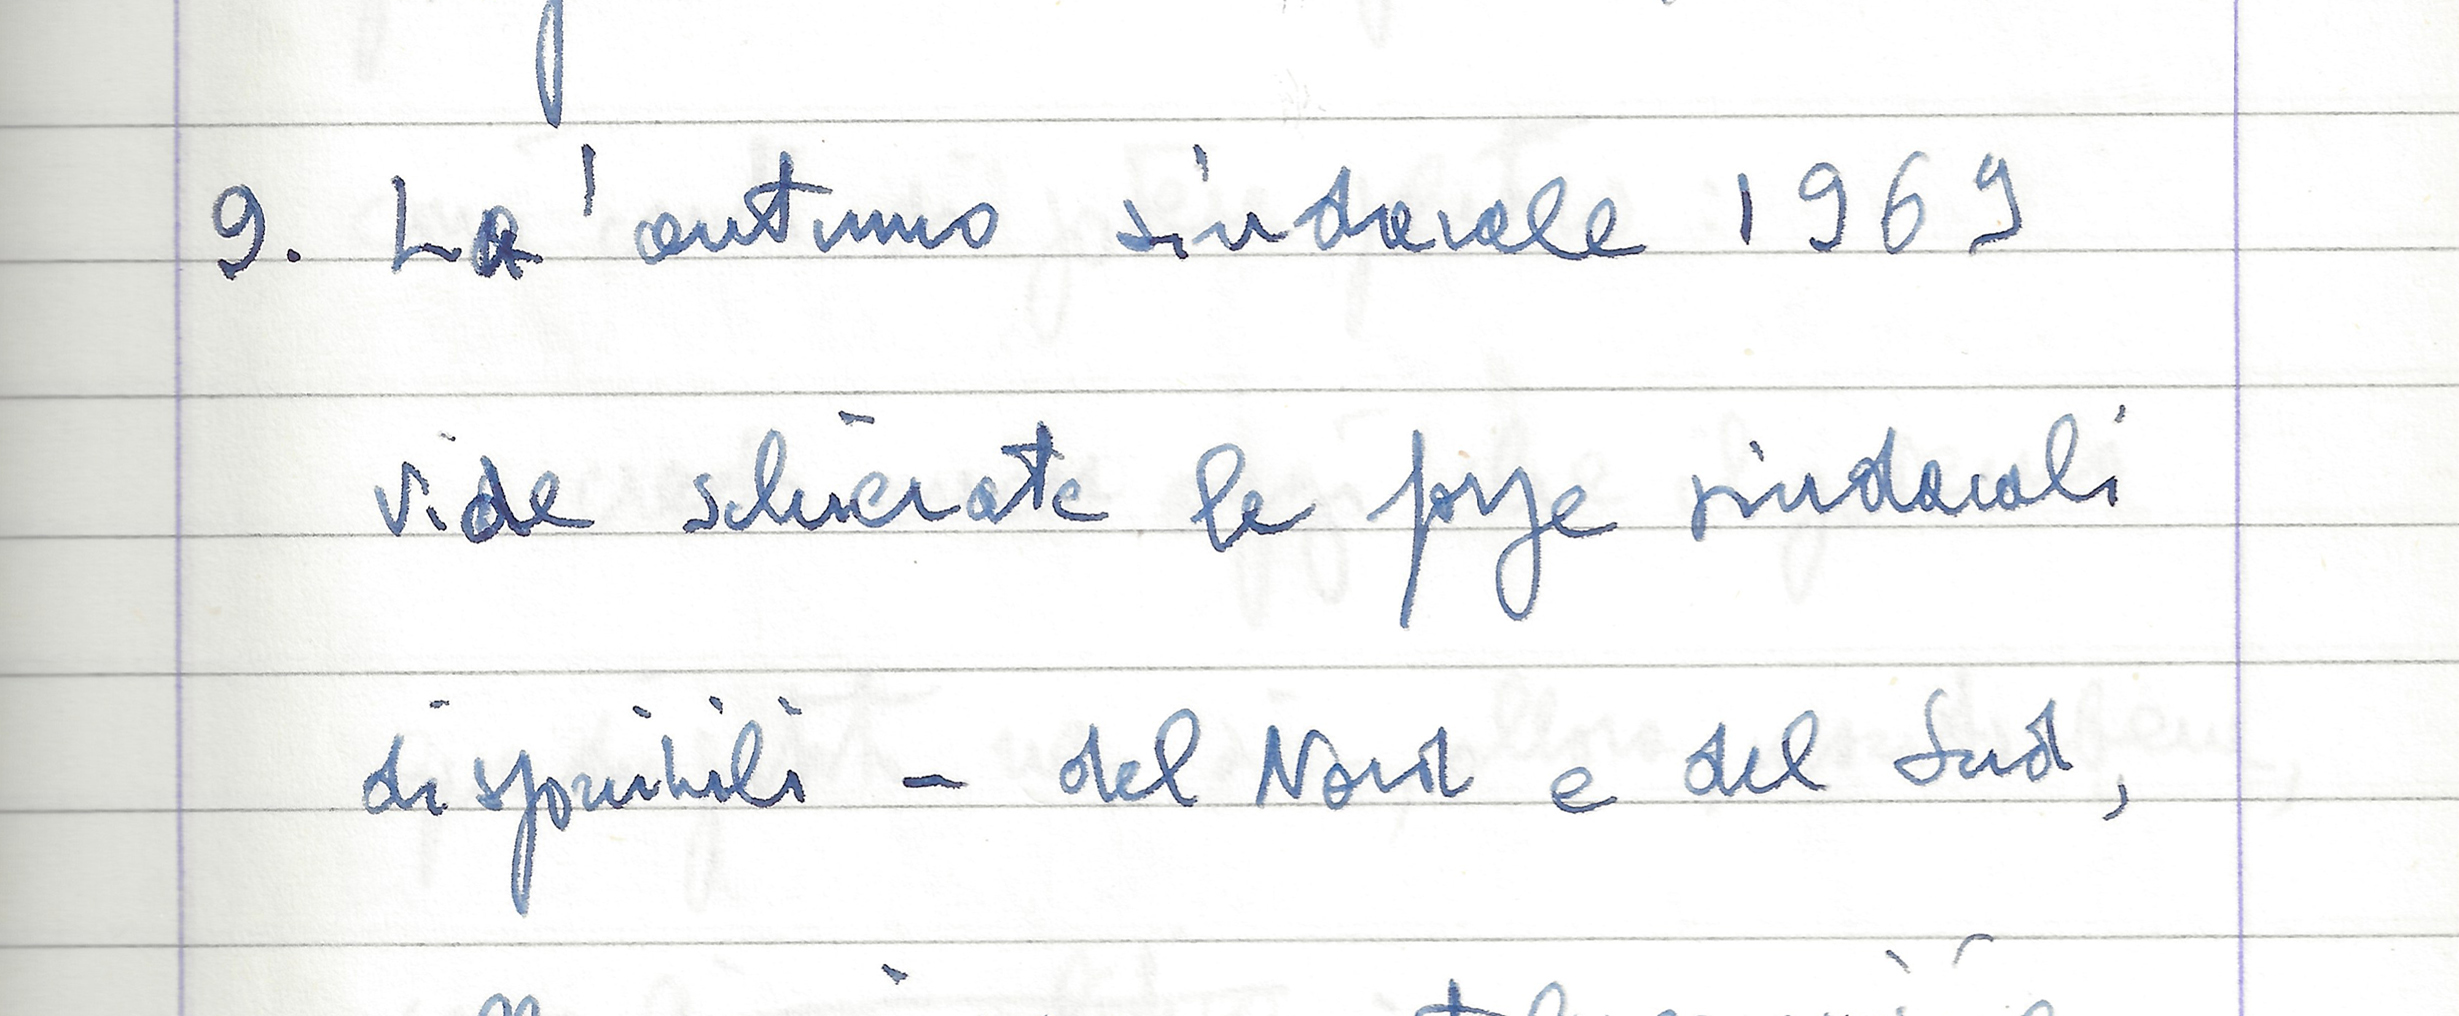 9. L'autunno sindacale 1969
vide schierate le forze sindacali
disponibili - del Nord e del Sud,